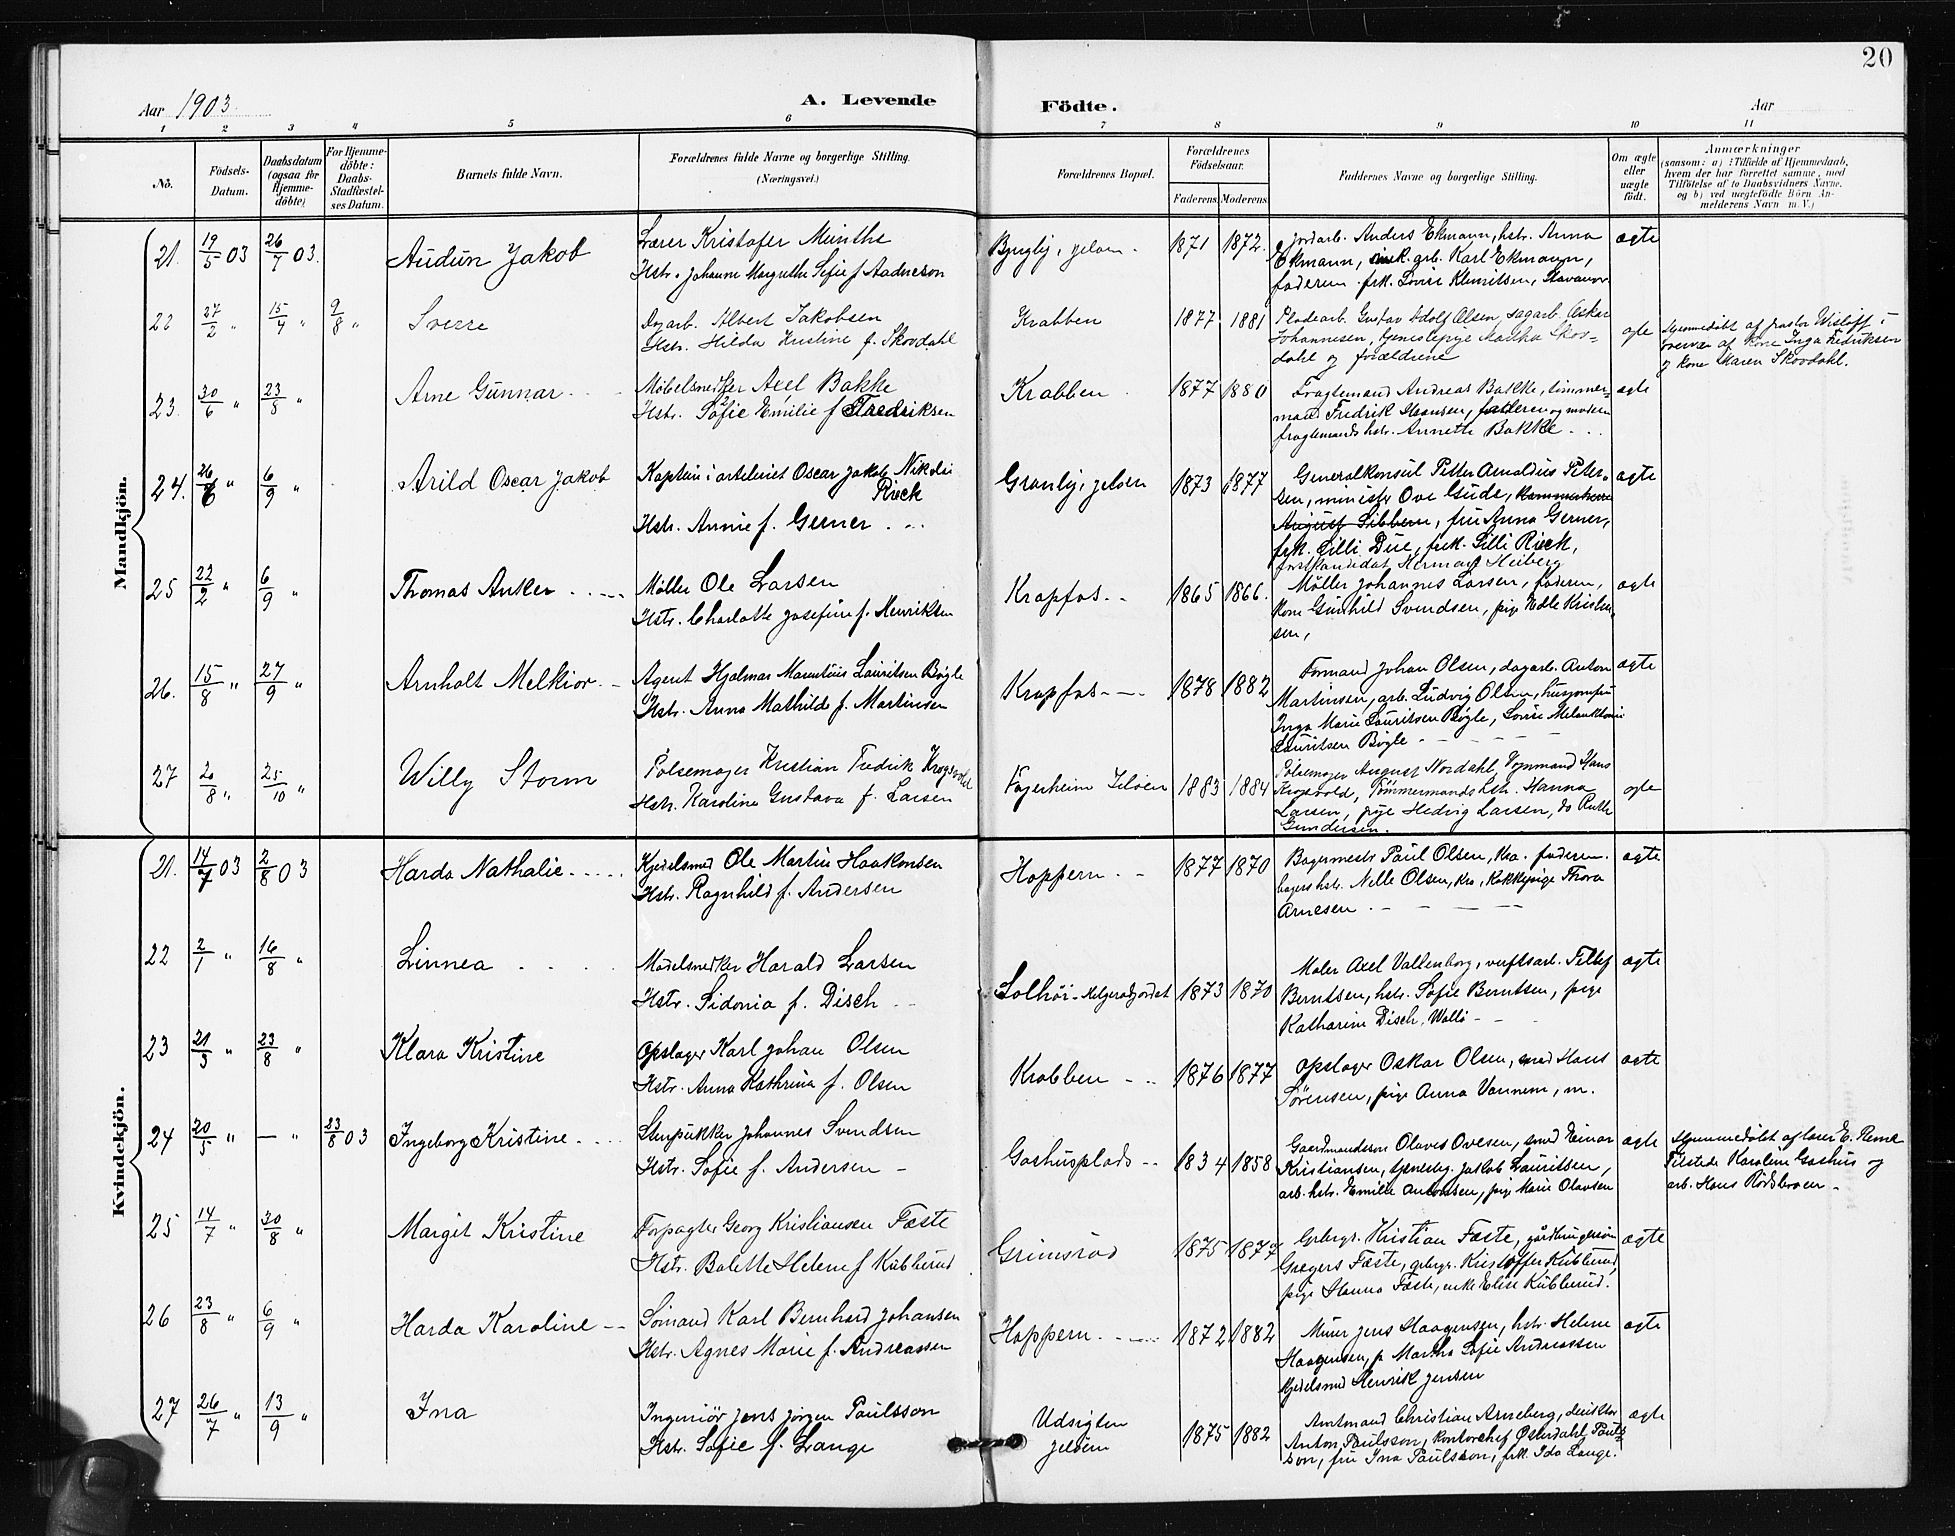 20
Aar 1903
A. Levende
Födte.
Aar
1 2 3 4 5 6 7 8 9 10 11
No.
Födsels-
Datum.
Daabsdatum
(ogsaa for
Hjemme-
döbte)
For Hjemme-
döbte:
Daabs-
Stadfæstel-
ses Datum.
Barnets fulde Navn.
Forældrenes fulde Navne og borgerlige Stilling.
(Næringsvei.)
Forældrenes Bopæl.
Forældrenes
Födselsaar.
Faderens
Moderens
Faddernes Navne og borgerlige Stilling.
Om ægte
eller
uægte
født.
Anmærkninger
(saasom: a) i Tilfælde af Hjemmedaab,
hvem der har forrettet samme, med
Tilföielse af to Daabsvidners Navne,
og b) ved uægtefödte Börn An-
melderens Navn m. V.)
Mandkjön.
21. 19/5 03 26/7 03. Audun Jakob
Lærer Kristofer Munthe
Hstr. Johanne Margrethe Sofie f. Aadneson
Byrgly, Jeløen 1871 1872.
Jordarb. Anders Ekmann, hstr. Anna
Ekmann, grb. Karl Ekmann,
faderen frk. Lovise Klemetsen, Stavanger
ægte
22 27/2 " 15/4 " 9/8 " Sverre
Dagarb. Albert Jakobsen
Hstr. Hilda Kristine f. Skovdahl
Krabben 1877 1881
Pladearb. Gustav Adolf Olsen, sagarb. Oskar
Johannesen, tjenestepige Martha Skov-
dahl og forældrene
ægte
Hjemmedøbt af pastor Wisløff i
overvær af kone Inga Fredriksen
og kone Maren Skovdahl.
23. 30/6 " 23/8 " Arne Gunnar
Møbelsnedker Axel Bakke
Hstr. Sofie Emilie f. Fredriksen
Krabben 1877 1880
Fragtemand Andreas Bakke, tømmer-
mand Fredrik Hansen, faderen og moderen
fragtemands hstr. Annette Bakke
ægte
24. 26/6 " 6/9 " Arild Oscar Jakob
Kaptein i artileriet Oscar Jakob Nikolai
Rieck
Hstr. Annie f. Gerner
Granly, Jeløen 1873 1877
Generalkonsul Petter Arnoldus Peter-
sen, minister Ove Gude, kammerherre
August Sibbern, fru Anna Gerner,
frk. Lilli Due, frk. Lilli Rieck,
forstkandidat Herman Heiberg
ægte
25 22/2 " 6/9 " Thomas Anker
Møller Ole Larsen
Hstr. Charlotte Josefine f. Henriksen
Krapfos 1865 1866.
Møller Johannes Larsen, faderen,
kone Gunhild Svendsen, pige Edle Kristen-
sen,
ægte
26. 15/8 " 27/9 " Arnholt Melkior
Agent Hjalmar Mauritius Lauritsen Bøgle
Hstr. Anna Mathilde f. Martinsen
Krapfos 1878 1882
Formand Johan Olsen, dagarb. Anton
Martinsen, arb. Ludvig Olsen, husjomfru
Inga Marie Lauritsen Bøgle, Lovise Melanktonie
Lauritsen Bøgle
ægte
27 2/8 " 25/10 " Willy Storm
Pølsemager Kristian Fredrik Krogsvold
Hstr. Karoline Gustava f. Larsen
Fagerheim Jeløen 1883 1884
Pølsemager August Nordahl, Formand Hans
Krogsvold, Tømmermands hstr. Hanna
Larsen, pige Hedvig Larsen, do Ruth
Gundersen.
ægte
Kvindekjön.
21. 14/7 03 2/8 03 Harda Nathalie
Kjedelsmed Ole Martin Haakonsen
Hstr. Ragnhild f. Andersen
Hoppern 1877 1870
Bagermestr. Paul Olsen, Kra. faderen.
bagers hstr. Nelle Olsen, Kra, Kokkepige Thora
Arnesen
ægte
22 2/1 " 16/8 " Linnea
Modelsnedker Harald Larsen
Hstr. Sidonia f. Disch
Solhöi - Helgerødgjordet 1873 1870
Maler Axel Vallenborg, verftsarb. Tellef
Berntsen, hstr. Sofie Berntsen, pige
Katharine Disch, Wallö
ægte
23 21/3 " 23/8 " Klara Kristine
Opslager Karl Johan Olsen
Hstr. Anna Kathrine f. Olsen
Krabben 1876 1877
Opslager Oskar Olsen, smed Hans
Sørensen, pige Anna Vannem, m.
ægte
24 20/5 " — " 23/8 03 Ingeborg Kristine
Stenpukker Johannes Svendsen
Hstr. Sofie f. Andersen
Gashusplads 1834 1858
Gaardmandssøn Olaves Ovesen, smed Einar
Kristiansen, tjenestg. Jakob Lauritsen,
arb. hstr. Emilie Antonsen, pige Marie Olavsen
ægte
Hjemmedøbt af lærer E. Rema
Tilstede Karoline Gashus og
arb. Hans Rødsbroen
25 14/7 " 30/8 " Margit Kristine
Forpagter Georg Kristiansen Fæste
Hstr. Bolette Helene f. Kubberud
Grimsrød 1875 1877
Grbrgr. Kristian Fæste, gårdbrugersøn
Gregers Fæste, grbrgr. Kristoffer Kubberud,
pige Hanna Fæste, enke Elise Kubberud.
ægte
26 23/8 " 6/9 " Harda Karoline
Sömand Karl Bernhard Johansen
Hstr. Agnes Marie f. Andreassen
Hoppern 1872 1882
Murer Jens Haagensen, hstr. Helene
Haagensen, p. Martha Sofie Andreassen
Kjedelsmed Henrik Jensen
ægte
27 26/7 " 13/9 " Ina
Ingeniör Jens Jörgen Paulsson
Hstr. Sofie f. Lange
Udsigten
Jeløen
1875 1882
Amtmand Christian Arneberg, direktør
Anton Paulsson, kontorchef Østerdahl Pauls-
son, fru Ina Paulsson, frk. Ida Lange.
ægte